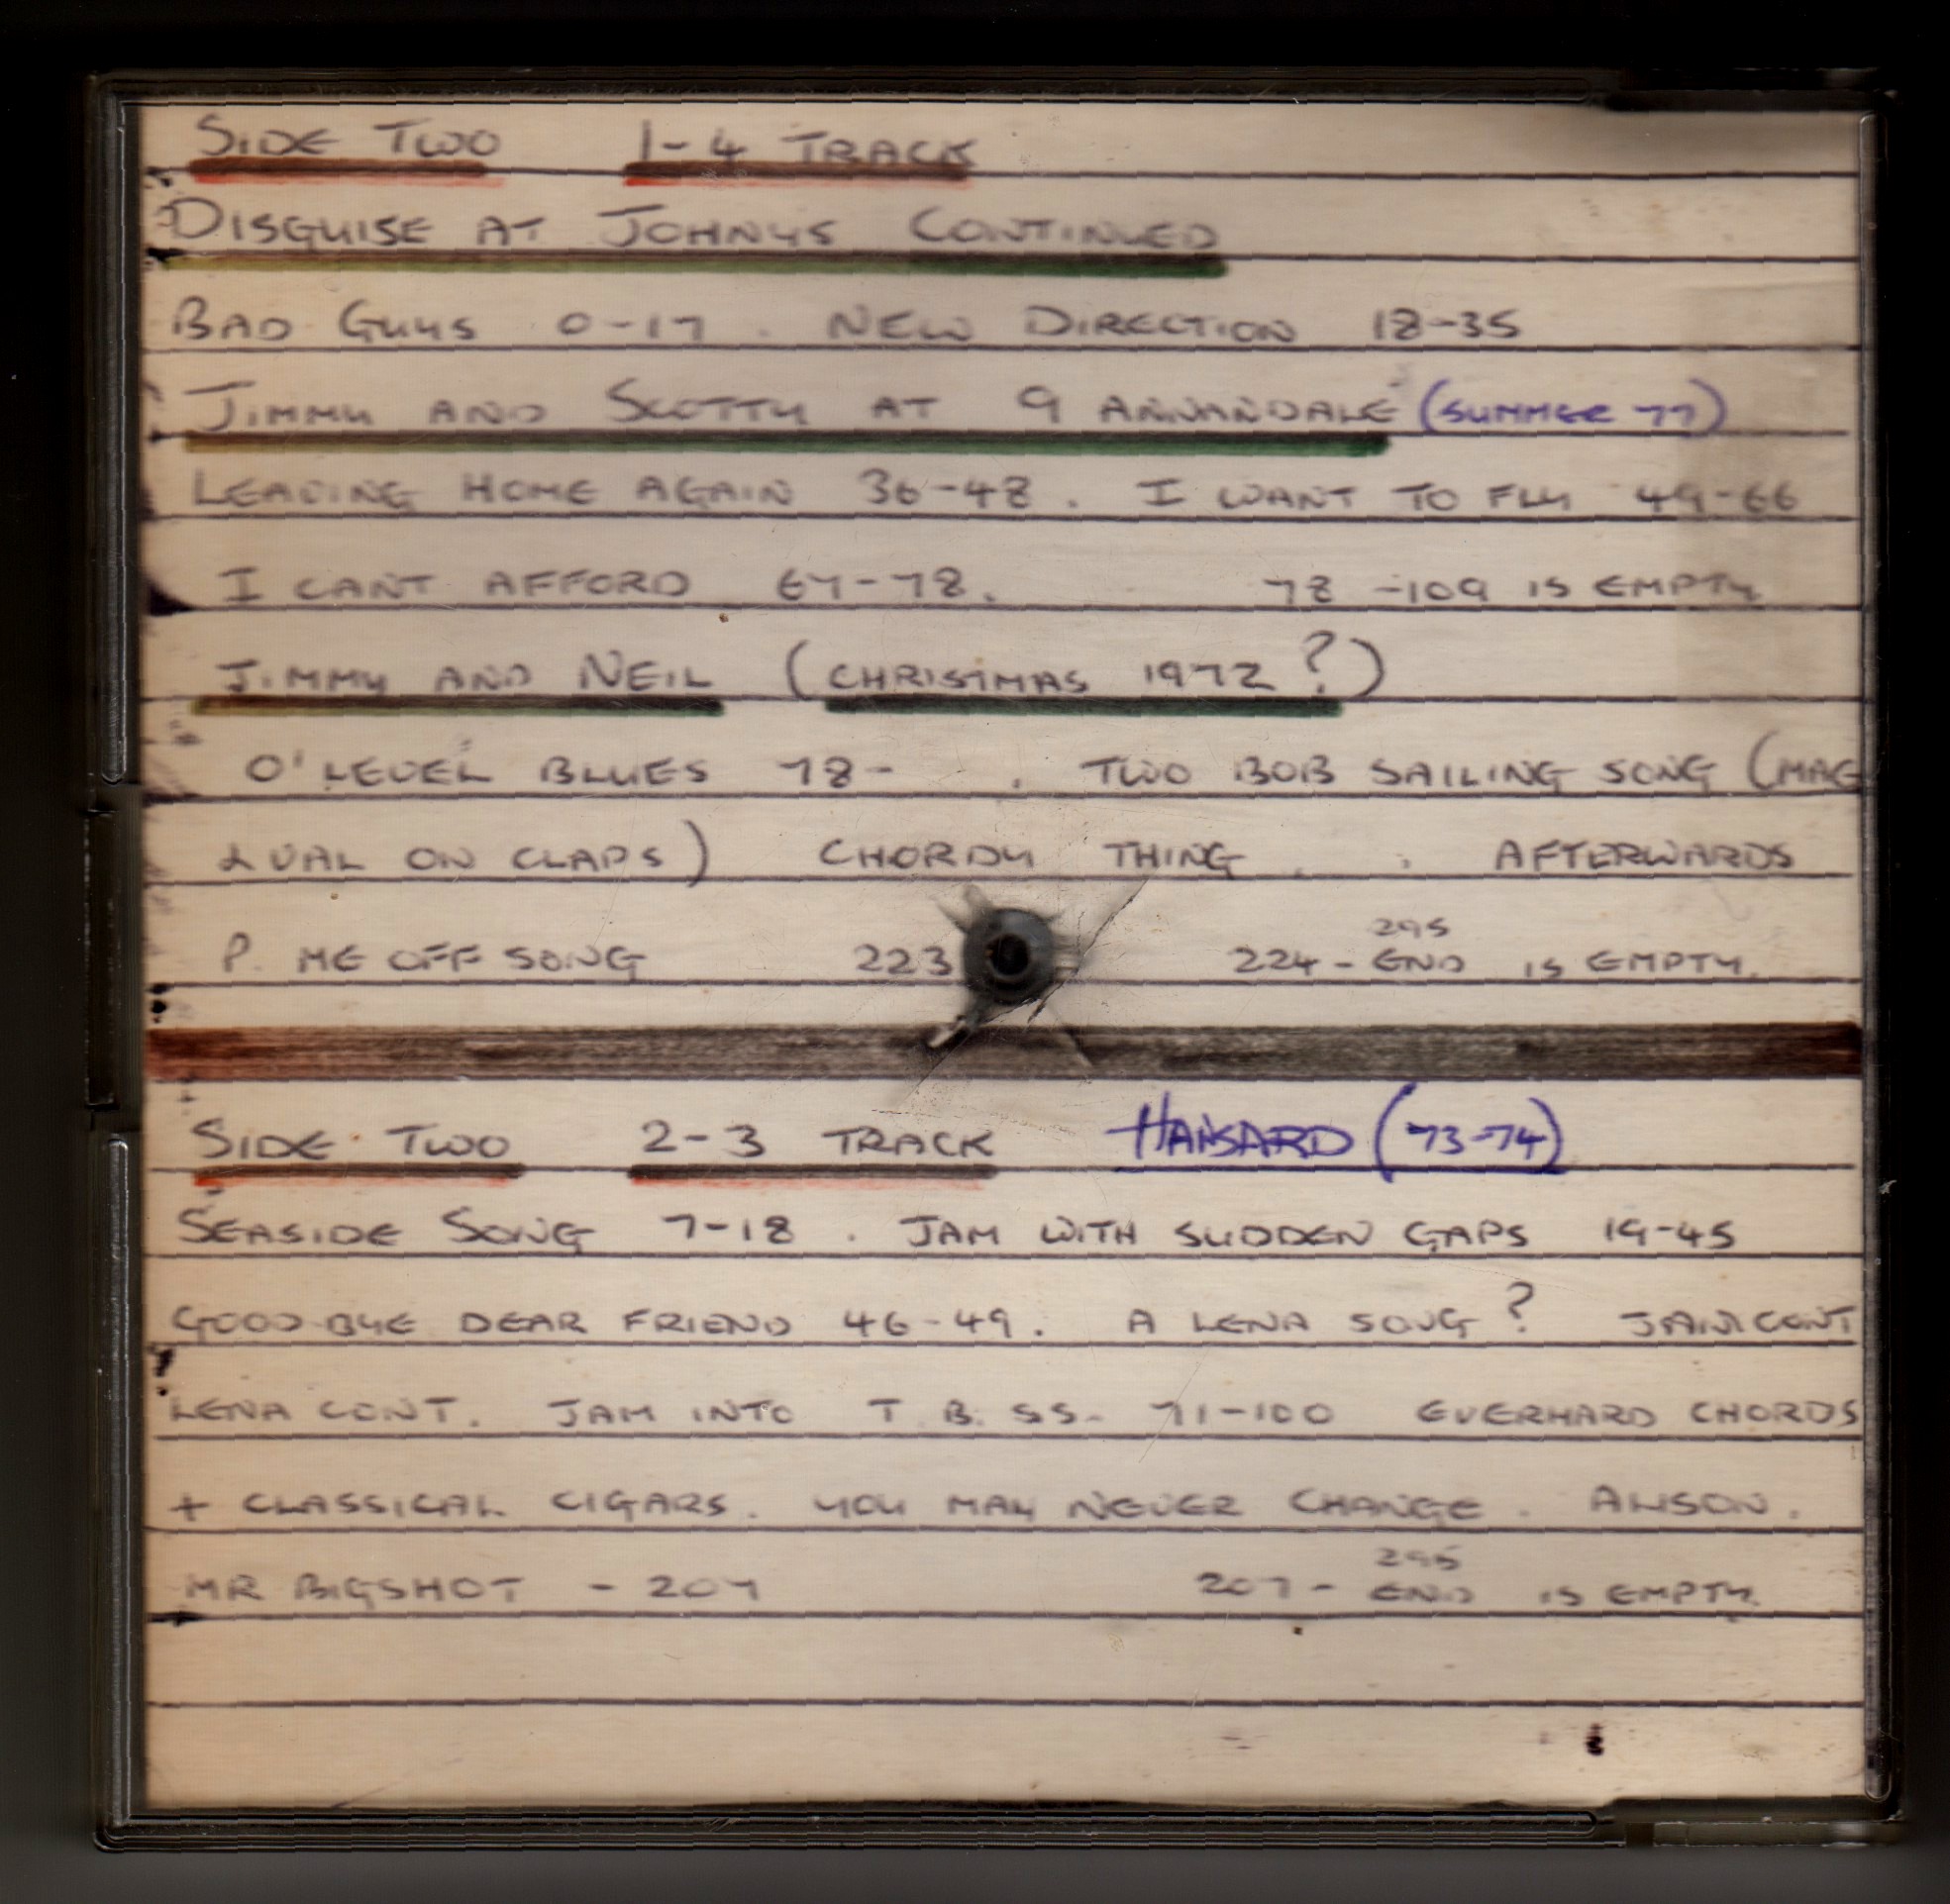 SIDE TWO 1-4 TRACK
DISGUISE AT JOHNYS CONTINUED
BAD GUYS 0-17 . NEW DIRECTION 18-35
JIMMY AND SCOTTY AT 9 ANNANDALE (SUMMER 77)
LEAVING HOME AGAIN 36-48 . I WANT TO FLY 49-66
I CANT AFFORD 67-78. 78-109 IS EMPTY
JIMMY AND NEIL (CHRISTMAS 1972?)
O'LEVEL BLUES 78- . TWO BOB SAILING SONG (MAG
& VAL ON CLAPS) CHORDY THING . . AFTERWARDS
P. ME OFF SONG 223 224 - END 295 IS EMPTY.
SIDE TWO 2-3 TRACK HANSARD (73-74)
SEASIDE SONG 7-18 . JAM WITH SUDDEN GAPS 19-45
GOODBYE DEAR FRIEND 46-49. A LENA SONG? JAM CONT
LENA CONT. JAM INTO T. B. S.S. 71-100 EVERHARD CHORDS
+ CLASSICAL CIGARS. YOU MAY NEVER CHANGE . ALISON.
MR BIGSHOT - 207 207 - END 295 IS EMPTY.